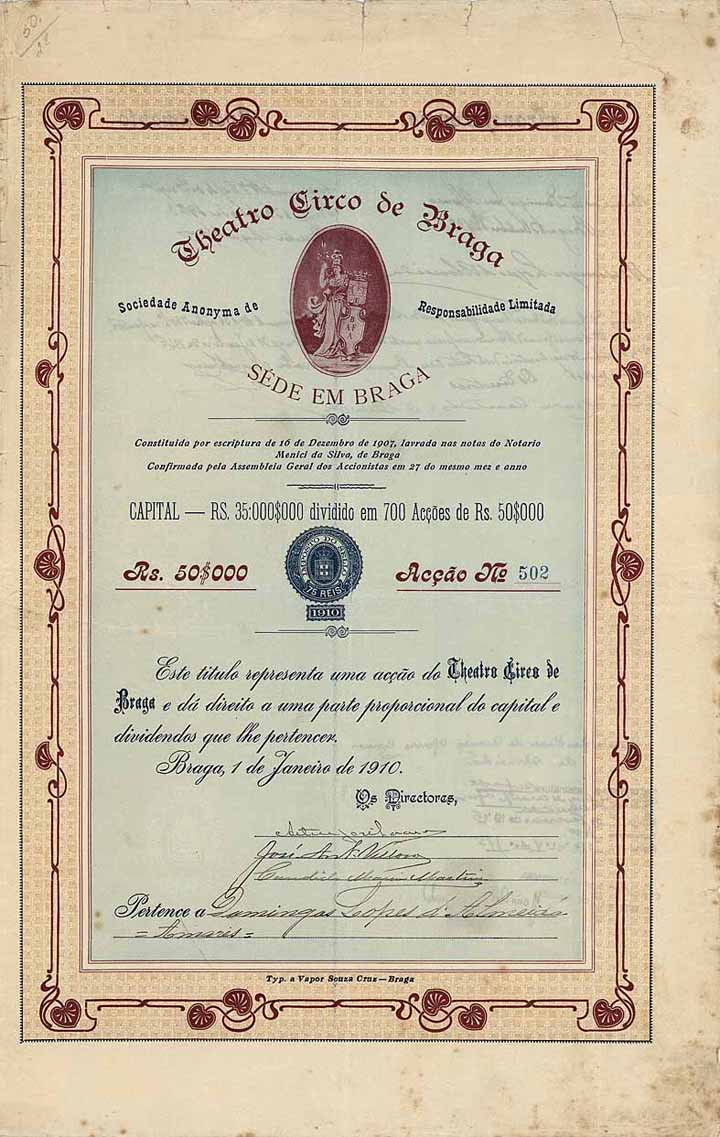 50,
Theatro Circo de Braga
Sociedade Anonyma de Responsabilidade Limitada
SÉDE EM BRAGA
Constituida por escriptura de 16 de Dezembro de 1907, lavrada nas notas do Notario
Menici da Silva, de Braga
Confirmada pela Assembleia Geral dos Accionistas em 27 do mesmo mez e anno
CAPITAL — RS. 35:000$000 dividido em 700 Acções de Rs. 50$000
Rs. 50$000
IMPOSTO DO SELLO
75 REIS
1910
Acção Nº 502
Este titulo representa uma acção do Theatro Circo de
Braga e dá direito a uma parte proporcional do capital e
dividendos que lhe pertencer.
Braga, 1 de Janeiro de 1910.
Os Directores,
José Ant.
Martins
Pertence a Domingos Lopes d'Almeida
= Amares =
Typ. a Vapor Souza Cruz — Braga